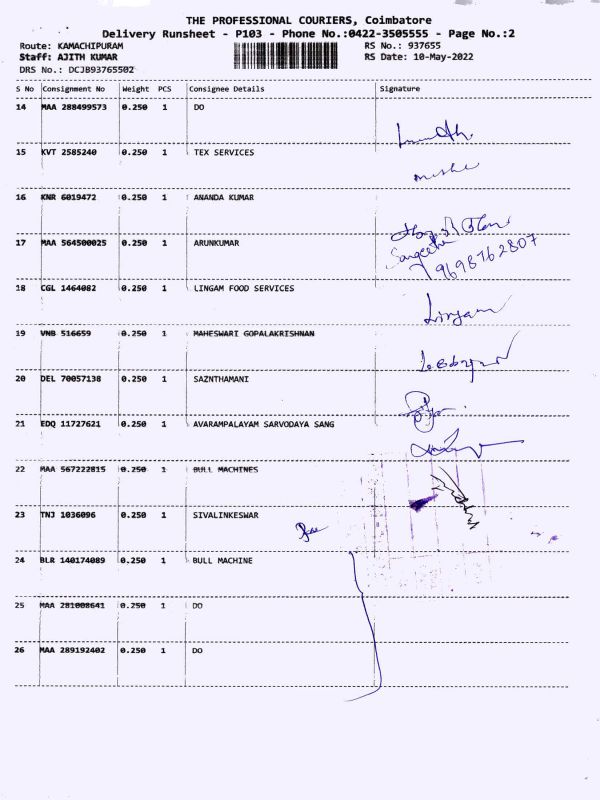 THE PROFESSIONAL COURIERS, Coimbatore
Delivery Runsheet - P103 - Phone No.:0422-3505555 - Page No.:2
Route: KAMACHIPURAM RS No.: 937655
Staff: AJITH KUMAR RS Date: 10-May-2022
DRS No.: DCJB93765502
S No Consignment No Weight PCS Consignee Details Signature
14 MAA 288499573 0.250 1 DO
15 KVT 2585240 0.250 1 TEX SERVICES
16 KNR 6019472 0.250 1 ANANDA KUMAR
17 MAA 564500025 0.250 1 ARUNKUMAR
Sangeetha
9698762807
18 CGL 1464082 0.250 1 LINGAM FOOD SERVICES
Lingam
19 VNB 516659 0.250 1 MAHESWARI GOPALAKRISHNAN
20 DEL 70057138 0.250 1 SAZNTHAMANI
21 EDQ 11727621 0.250 1 AVARAMPALAYAM SARVODAYA SANG
22 MAA 567222815 0.250 1 BULL MACHINES
23 TNJ 1036096 0.250 1 SIVALINKESWAR
24 BLR 140174089 0.250 1 BULL MACHINE
25 MAA 281008641 0.250 1 DO
26 MAA 289192402 0.250 1 DO